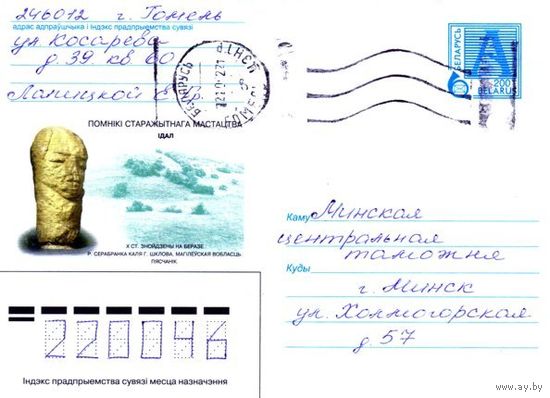 246012 г. Гомель
адрас адпраўшчыка і індэкс прадпрыемства сувязі
ул Косарева
д. 39 кв 60
Лапицкой Е. Гр.
БЕЛАРУСЬ
A
200
BELARUS
БЕЛАРУСЬ
ПОМНІКІ СТАРАЖЫТНАГА МАСТАЦТВА
ІДАЛ
X СТ. ЗНОЙДЗЕНЫ НА БЕРАЗЕ
Р. СЕРАБРАНКА КАЛЯ Г. ШКЛОВА, МАГІЛЁЎСКАЯ ВОБЛАСЦЬ
ПЯСЧАНІК
Каму Минская
центральная
таможня
Куды
г. Минск
ул. Холмогорская
д. 57
220046
Індэкс прадпрыемства сувязі месца назначэння
www.ay.by